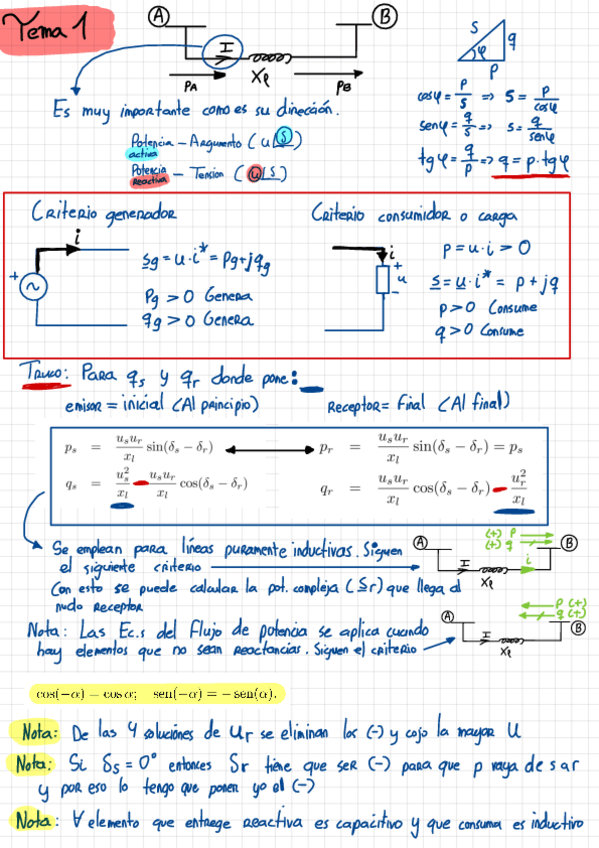 Tema 1
A
B
I
Xl
PA
PB
S
q
φ
P
Es muy importante como es su dirección.
Potencia activa – Argumento (u∠δ)
Potencia Reactiva – Tension (u∠δ)
cosφ = p/s => S = p/cosφ
senφ = q/s => s = q/senφ
tgφ = q/p => q = p·tgφ
Criterio generador
i
+
~
sg = u·i* = pg+jqg
Pg > 0 Genera
qg > 0 Genera
Criterio consumidor o carga
i
+
u
-
p = u·i > 0
s = u·i* = p + jq
p>0 Consume
q>0 Consume
Truco: Para qs y qr donde pone:
emisor = inicial (Al principio)
Receptor = Final (Al final)
ps = usur/xl sin(δs − δr)
pr = usur/xl sin(δs − δr) = ps
qs = us²/xl − usur/xl cos(δs − δr)
qr = usur/xl cos(δs − δr) − ur²/xl
Se emplean para líneas puramente inductivas. Siguen
el siguiente criterio
Con esto se puede calcular la pot. compleja (Sr) que llega al
nudo receptor
A
(+) P
(+) q
B
I
i
Xl
Nota: Las Ec.s del Flujo de potencia se aplica cuando
hay elementos que no sean reactancias. Siguen el criterio
A
P (+)
q (+)
B
I
Xl
cos(−α) = cos α; sen(−α) = − sen(α).
Nota: De las 4 soluciónes de Ur se eliminan los (-) y cojo la mayor U
Nota: Si δs = 0° entonces δr tiene que ser (-) para que p vaya de s a r
y por eso lo tengo que poner yo el (-)
Nota: ∀ elemento que entrege reactiva es capacitivo y que consuma es inductivo